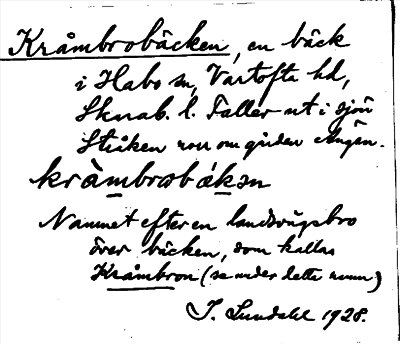 Kråmbrobäcken, en bäck
i Habo sn, Vartofta hd,
Skarab. l. Faller ut i sjön
Stråken norr om gården Ängen.
kràmbrobákən
Namnet efter en landsvägsbro
över bäcken, som kallas
Kråmbron (se under detta namn)
I. Lundahl 1928.